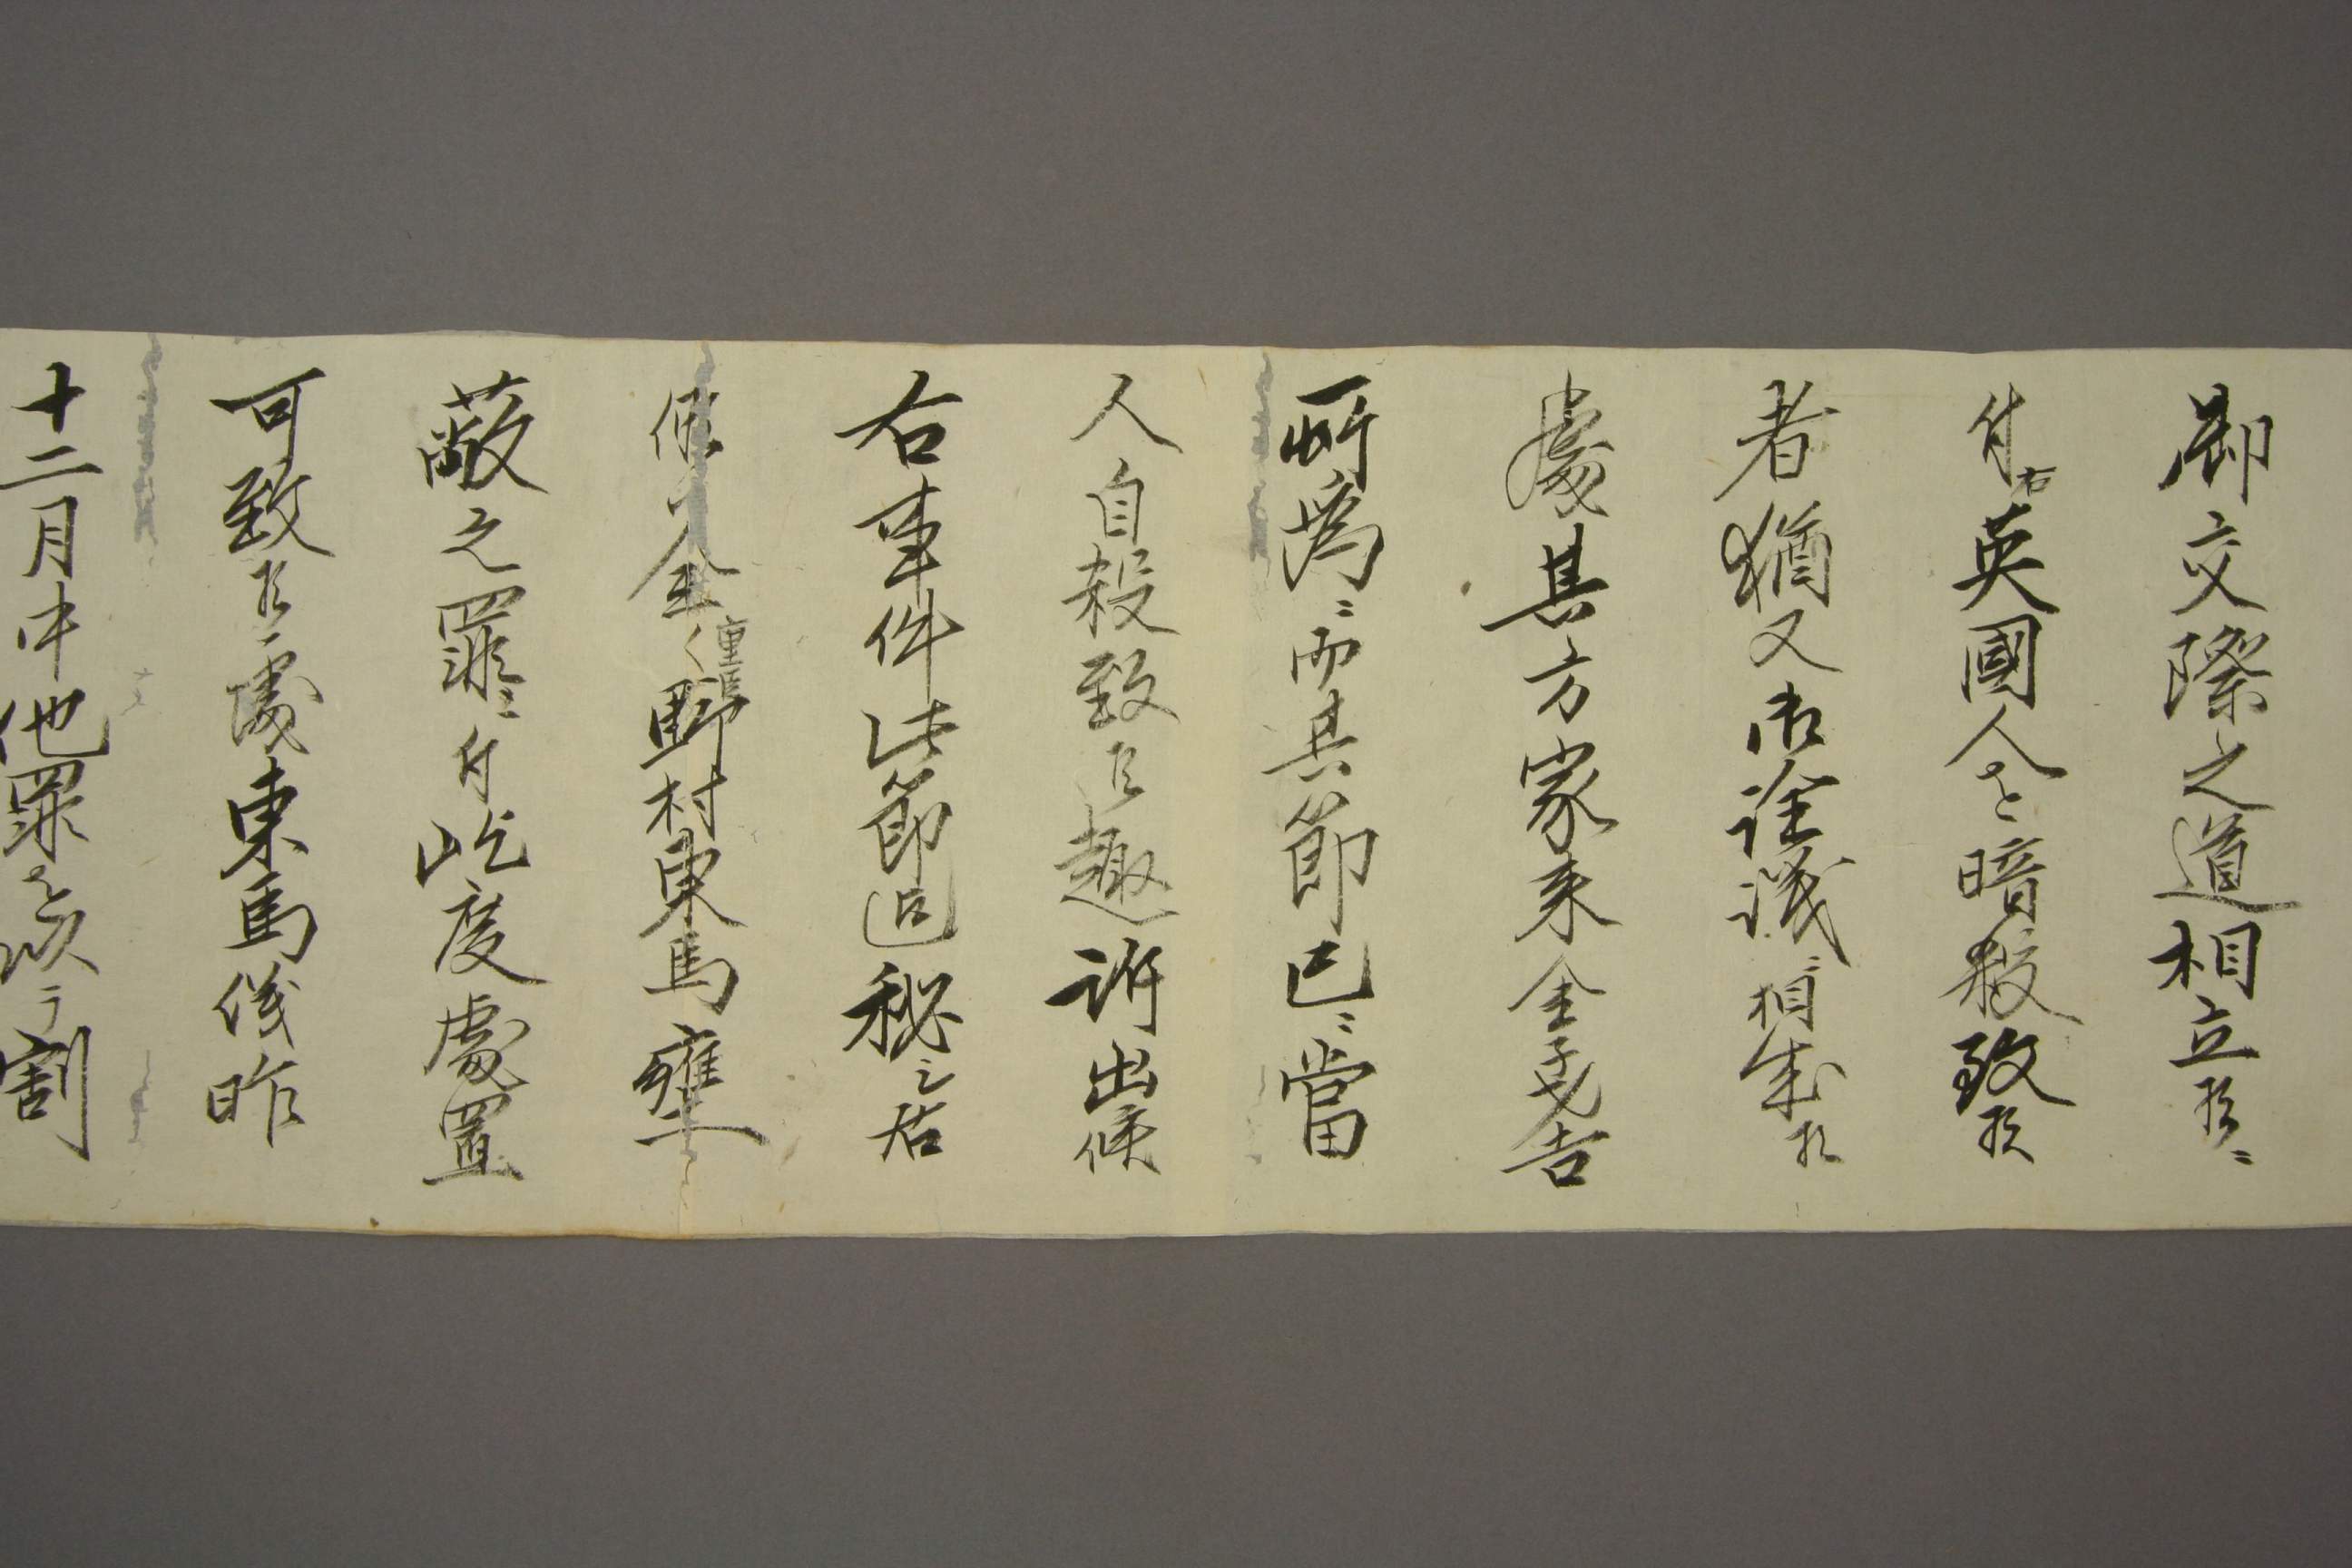 御交際之道相立候ニ
付右英國人を暗殺致候
者猶又御詮議相成候
處其方家来金子才吉
所為ニ而其節已ニ當
人自殺致候趣訴出候
右事件此節迄秘シ居
候全く重臣野村東馬壅
蔽之罪ニ付屹度處置
可致候處東馬儀昨
十二月中他罪を以テ割